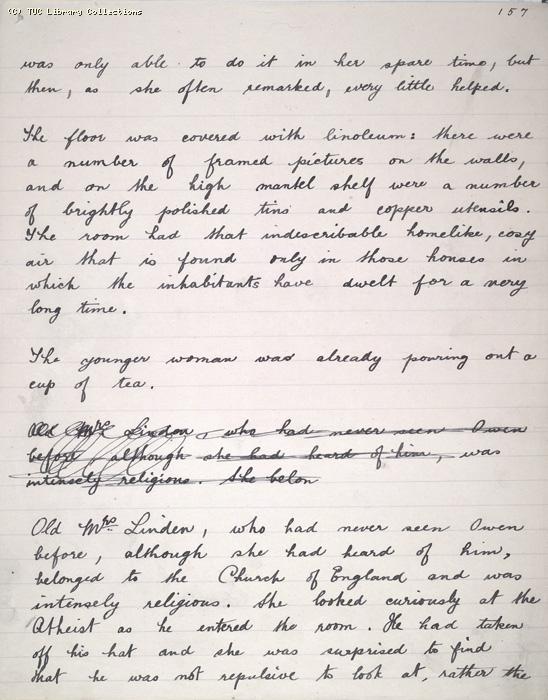 (C) TUC Library Collections
157
was only able to do it in her spare time, but
then, as she often remarked, every little helped.
The floor was covered with linoleum: there were
a number of framed pictures on the walls,
and on the high mantel shelf were a number
of brightly polished tins and copper utensils.
The room had that indescribable homelike, cosy
air that is found only in those houses in
which the inhabitants have dwelt for a very
long time.
The younger woman was already pouring out a
cup of tea.
Old Mrs Linden, who had never seen Owen
before although she had heard of him, was
intensely religious. She belon
Old Mrs Linden, who had never seen Owen
before, although she had heard of him,
belonged to the Church of England and was
intensely religious. She looked curiously at the
Atheist as he entered the room. He had taken
off his hat and she was surprised to find
that he was not repulsive to look at, rather the